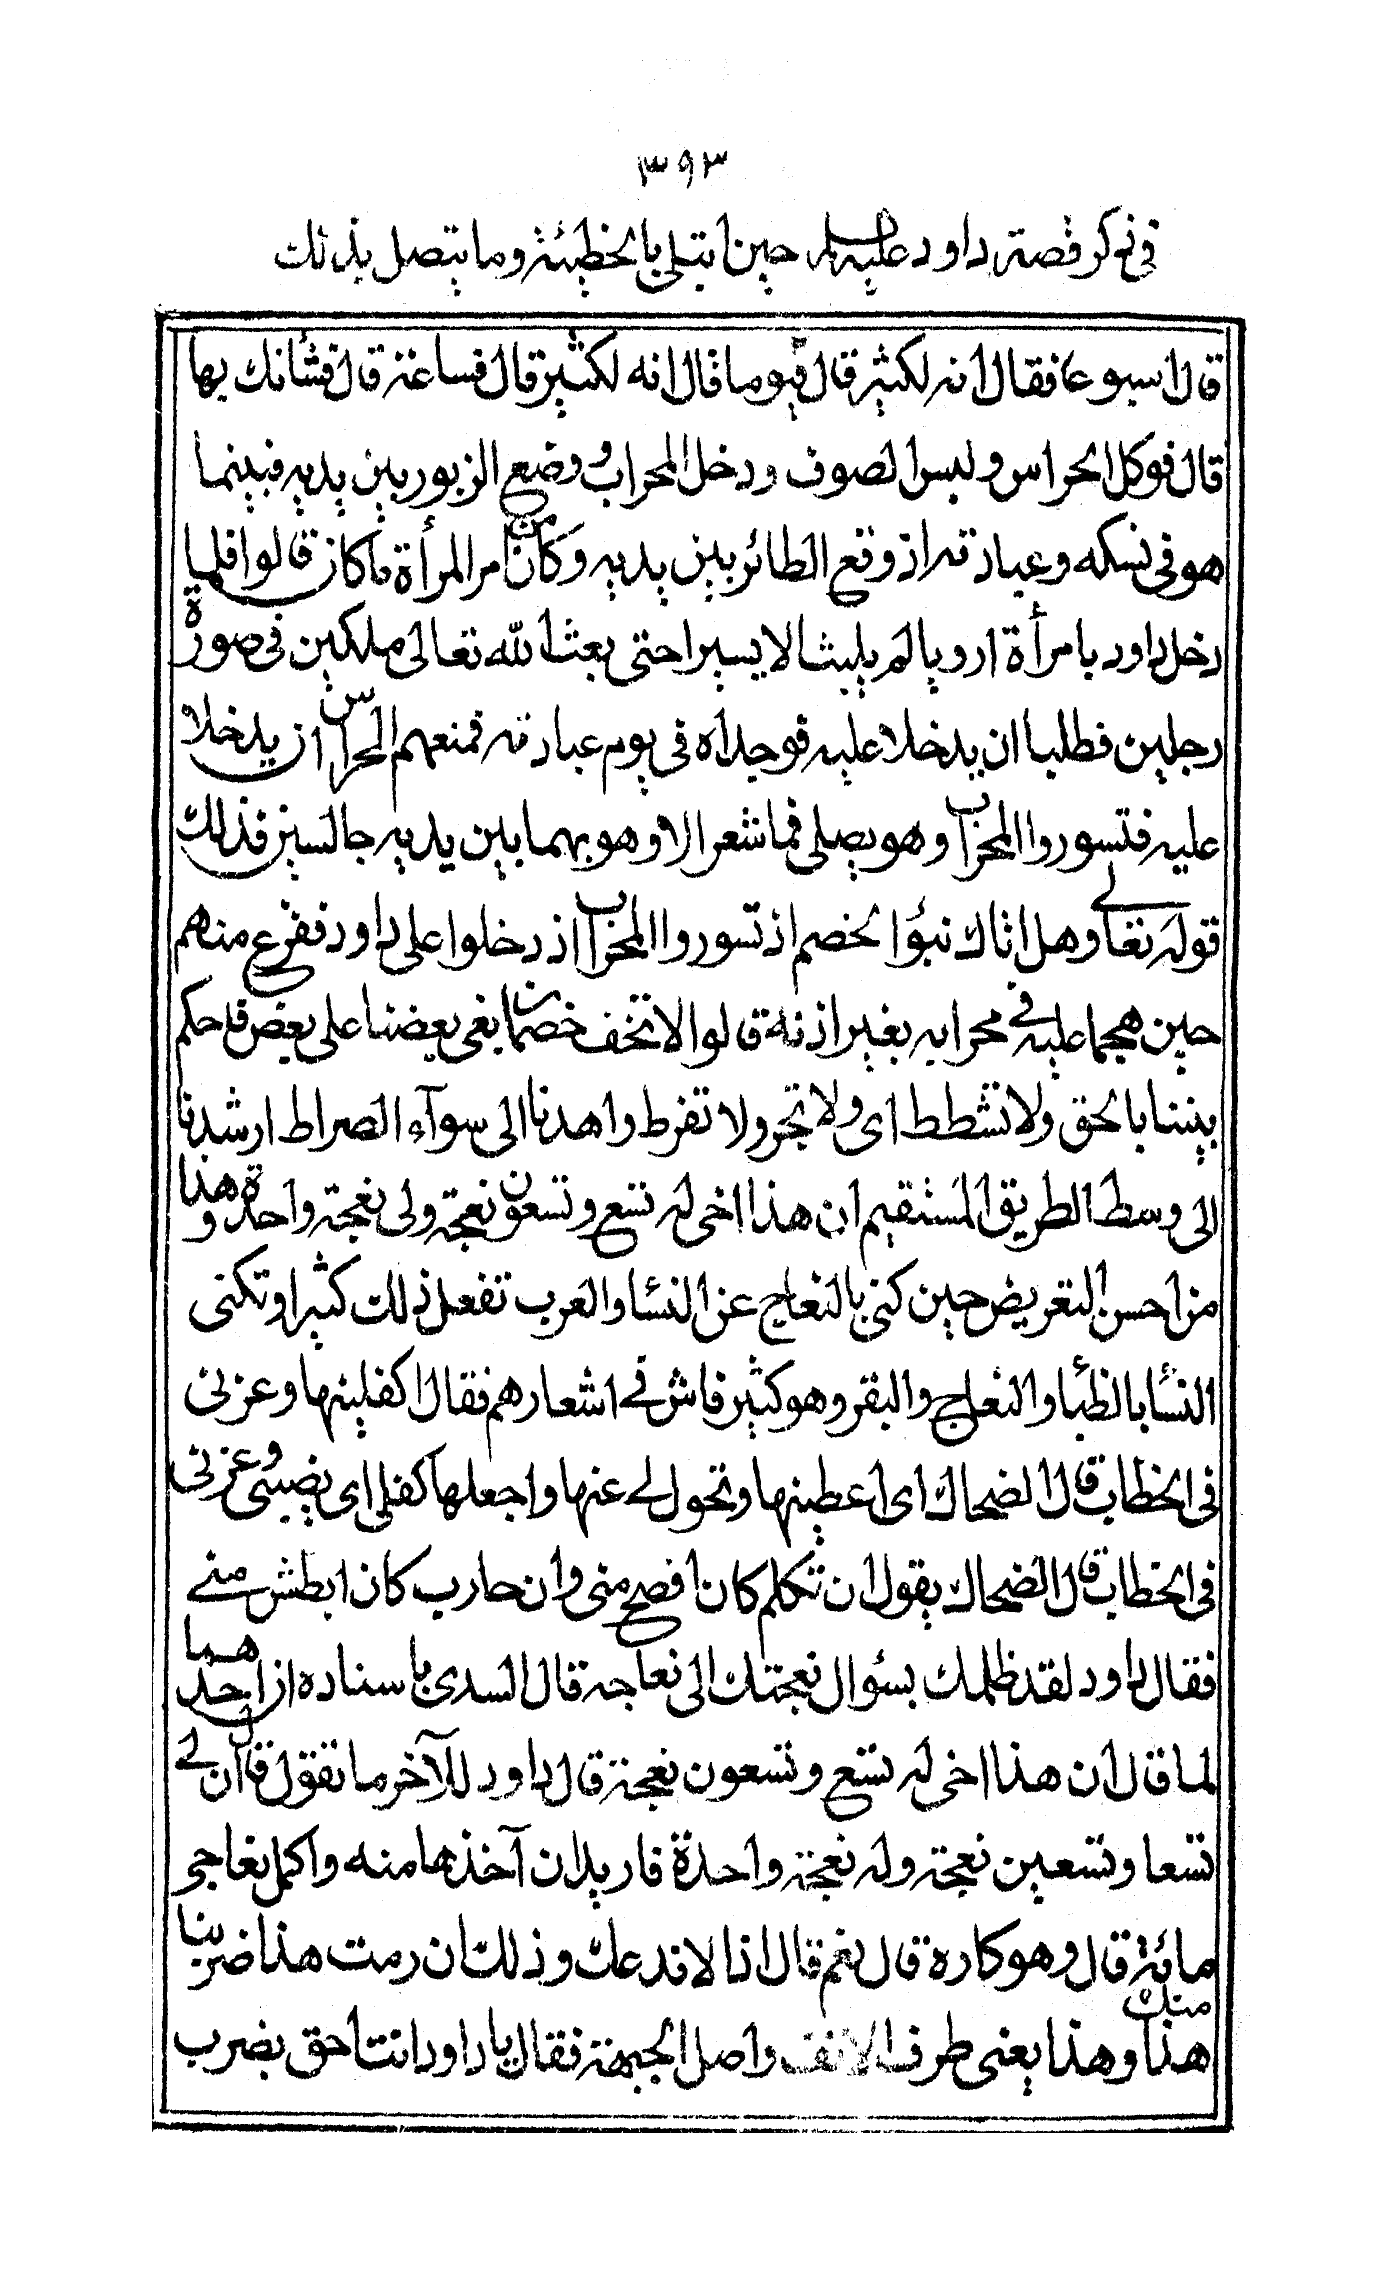 ٣٩٣
فى ذكر قصة داود عليه السلم حين ابتلى بالخطيئة وما يتصل بذلك
قال اسبوعا فقال انه لكثير قال فيوما قال انه لكثير قال فساعة قال فشانك بها
قال فوكل الحراس ولبس الصوف ودخل المحراب ووضع الزبور بين يديه فبينما
هو فى نسكه وعبادته اذ وقع الطائر بين يديه وكان من امر المرأة ما كان قالوا فلما
دخل داود بامرأة اوريا لم يلبث الا يسيرا حتى بعث الله تعالى ملكين فى صورة
رجلين فطلبا ان يدخلا عليه فوجداه فى يوم عبادته فمنعهم الحراس ان يدخلا
عليه فتسوروا المحراب وهو يصلى فما شعر الا وهو بهما بين يديه جالسين فذلك
قوله تعالى وهل اتاك نبؤا الخصم اذ تسوروا المحراب اذ دخلوا على داود ففزع منهم
حين هجما عليه فى محرابه بغير اذنه قالوا لا تخف خصمان بغى بعضنا على بعض فاحكم
بيننا بالحق ولا تشطط اى ولا تجر ولا تفرط واهدنا الى سوآء الصراط ارشدنا
الى وسط الطريق المستقيم ان هذا اخى له تسع وتسعون نعجة ولى نعجة واحدة وهذا
من احسن التعريض حين كنى بالنعاج عن النسا والعرب تفعل ذلك كثيرا وتكنى
النسأ بالظبأ والنعاج والبقر وهو كثير فاش فى اشعارهم فقال اكفلينها وعزنى
فى الخطاب قال الضحاك اى اعطينها وتحول لى عنها واجعلها كفلى اى نصيبى وعزنى
فى الخطاب قال الضحاك يقول ان تكلم كان افصح منى وان حارب كان ابطش منى
فقال داود لقد ظلمك بسؤال نعجتك الى نعاجه قال السدى باسناده ان احدهما
لما قال ان هذا اخى له تسع وتسعون نعجة قال داود للآخر ما تقول قال ان لى
تسعا وتسعين نعجة وله نعجة واحدة فاريد ان آخذها منه واكمل نعاجى
مائة قال وهو كاره قال نعم قال اذا لا ندعك وذلك ان رمت هذا ضربنا منك
هذا وهذا يعنى طرف الانف واصل الجبهة فقال يا داود انت احق بضرب